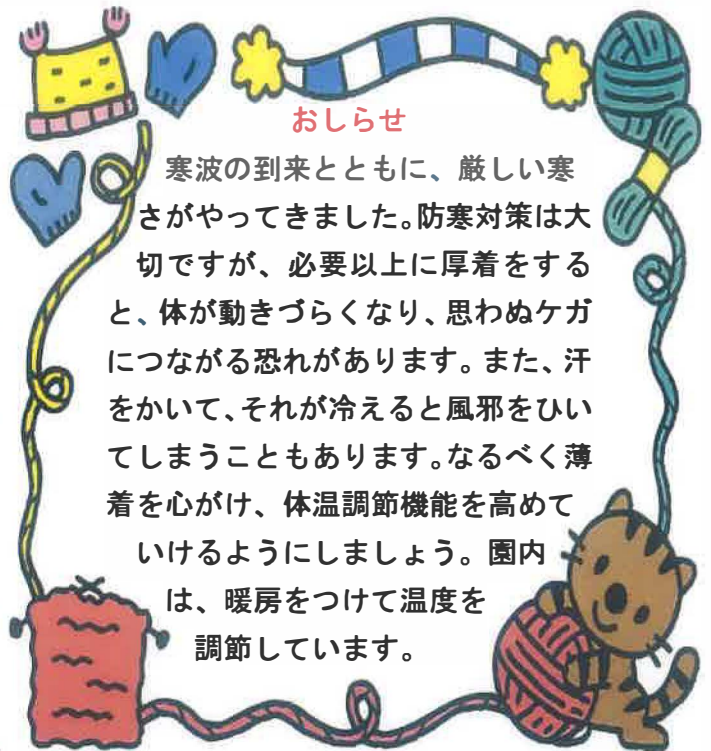 おしらせ
寒波の到来とともに、厳しい寒
さがやってきました。防寒対策は大
切ですが、必要以上に厚着をする
と、体が動きづらくなり、思わぬケガ
につながる恐れがあります。また、汗
をかいて、それが冷えると風邪をひい
てしまうこともあります。なるべく薄
着を心がけ、体温調節機能を高めて
いけるようにしましょう。園内
は、暖房をつけて温度を
調節しています。